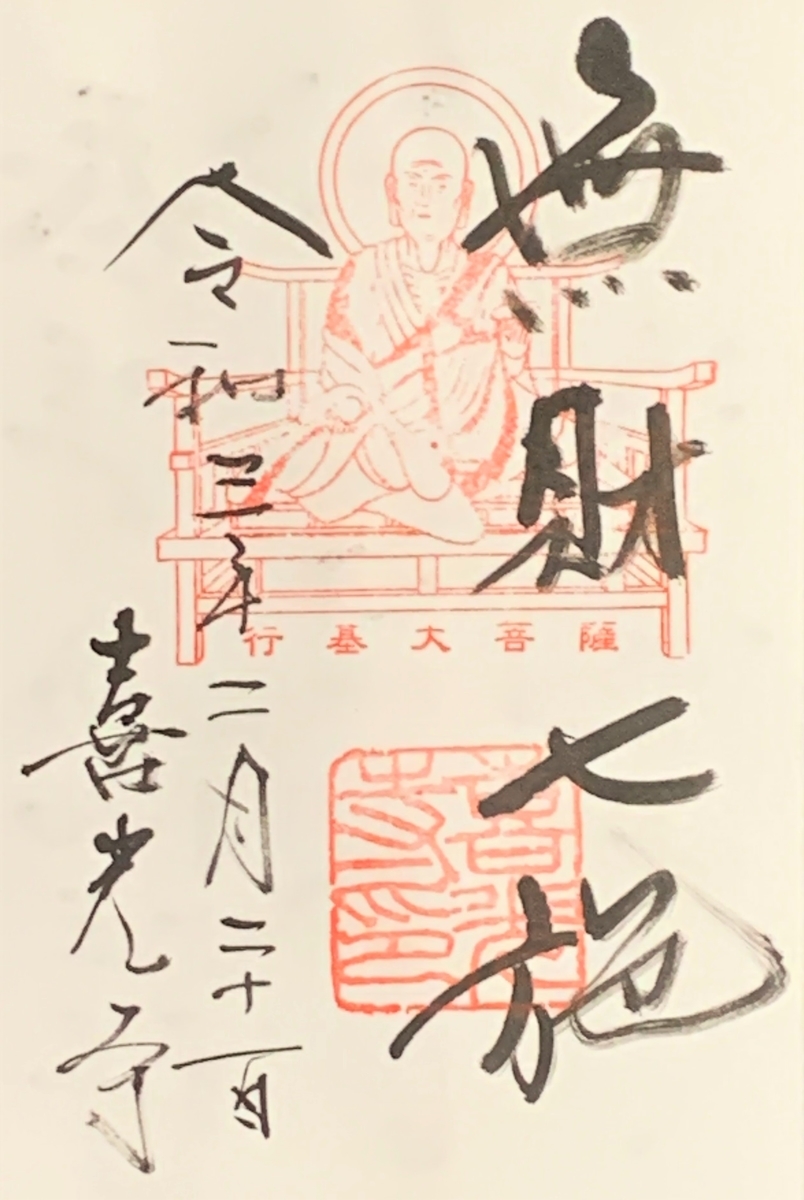 無財七施
令和三年二月二十一日
喜光寺
行基大菩薩
喜光
寺印